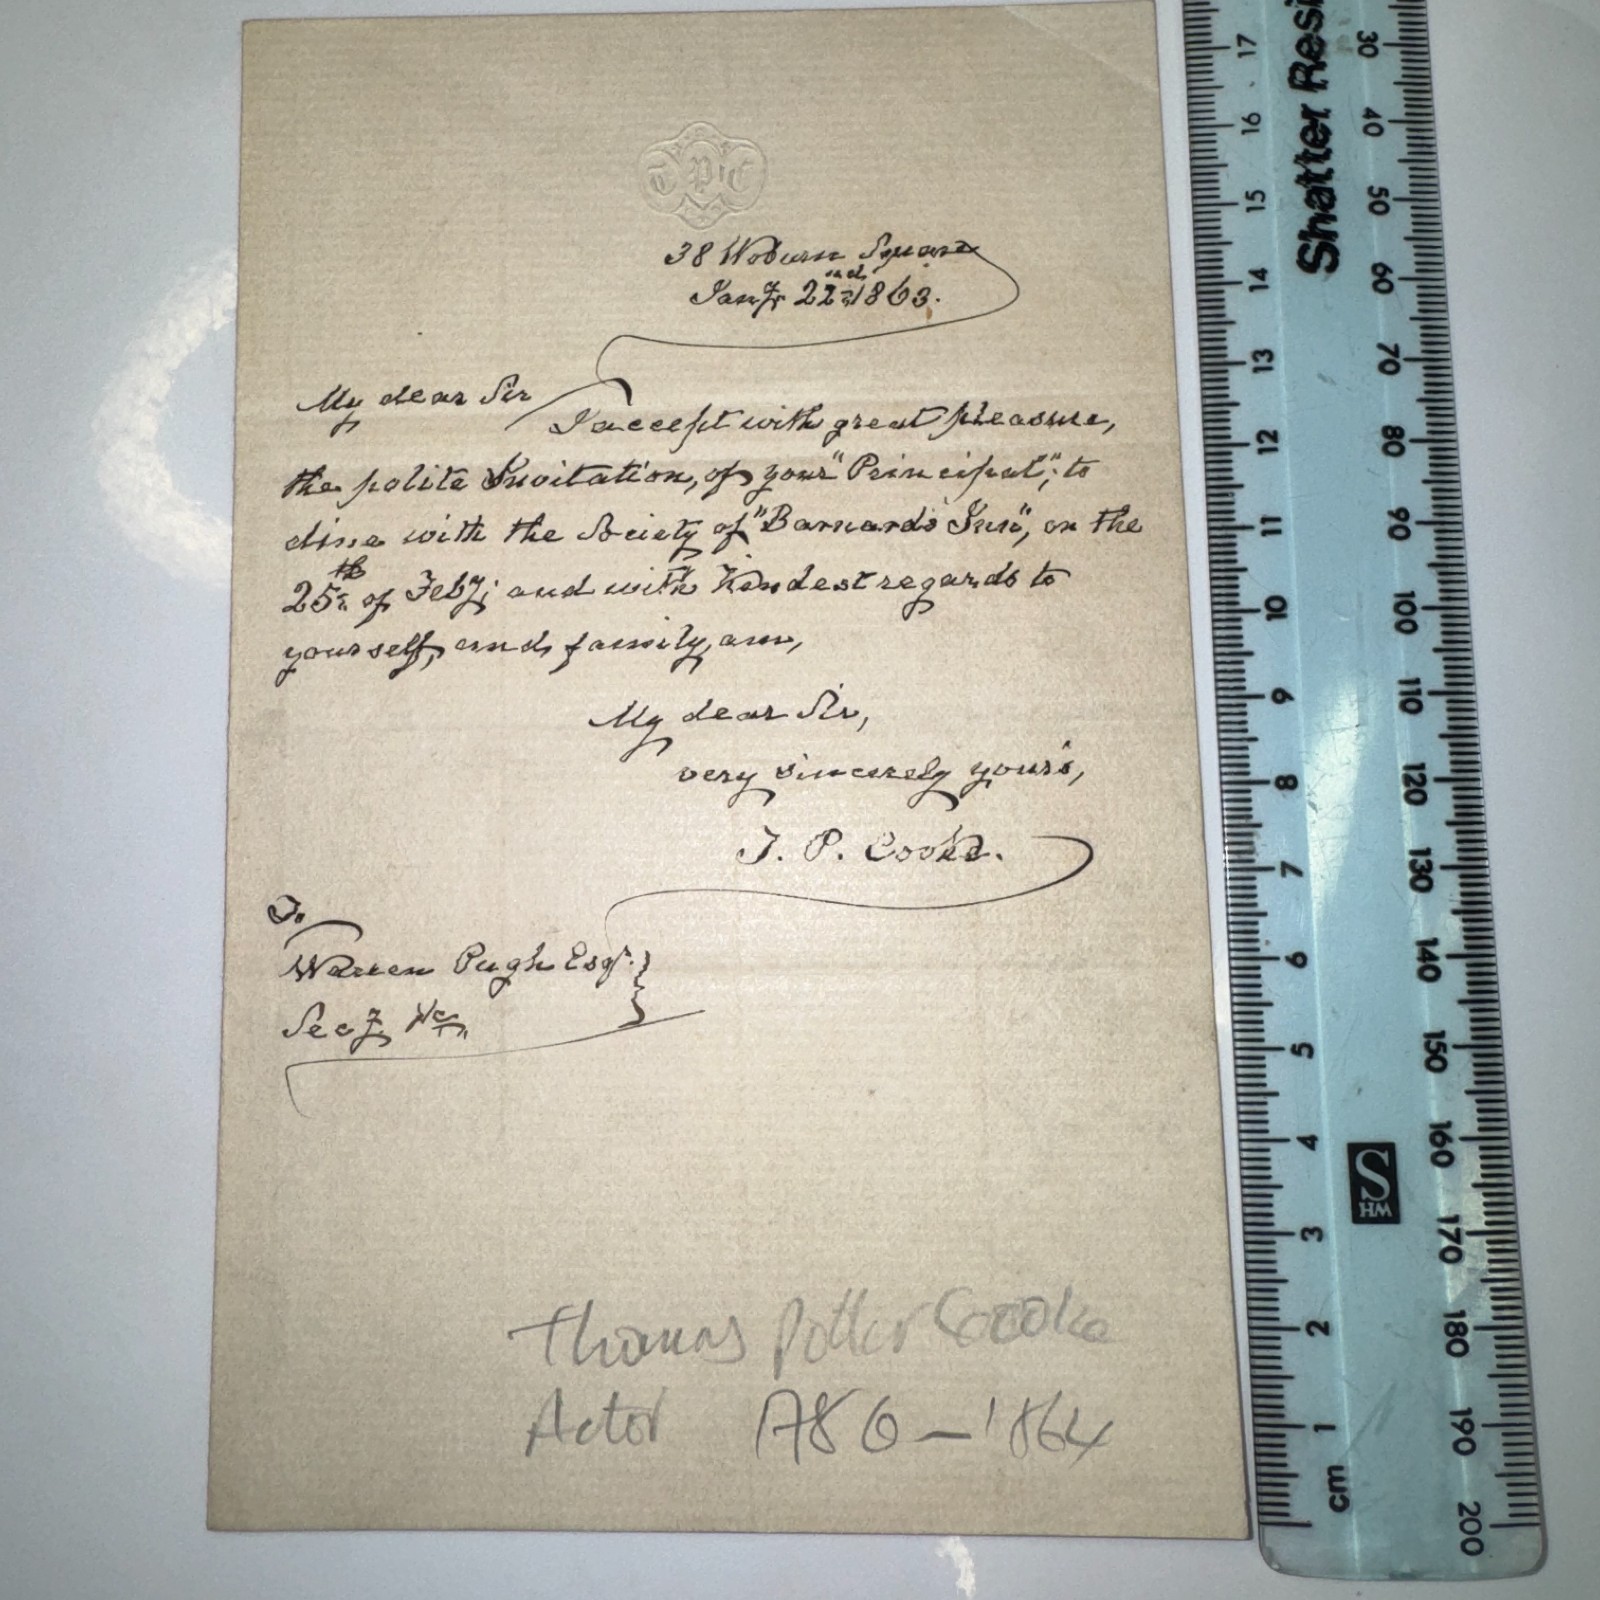 TPC
38 Woburn Square
Jany 22nd 1863.
My dear Sir
I accept with great pleasure,
the polite Invitation, of your "Principal"; to
dine with the Society of "Barnard's Inn", on the
25th of Feby; and with kindest regards to
yourself, and family, am,
My dear Sir,
very sincerely your's,
T. P. Cooke.
To
Warren Pugh Esqr.
Secy &c
Thomas Potter Cooke
Actor 1786-1864
Shatter Resi
17 16 15 14 13 12 11 10 9 8 7 6 5 4 3 2 1 cm
30 40 50 60 70 80 90 100 110 120 130 140 150 160 170 180 190 200
S
WH